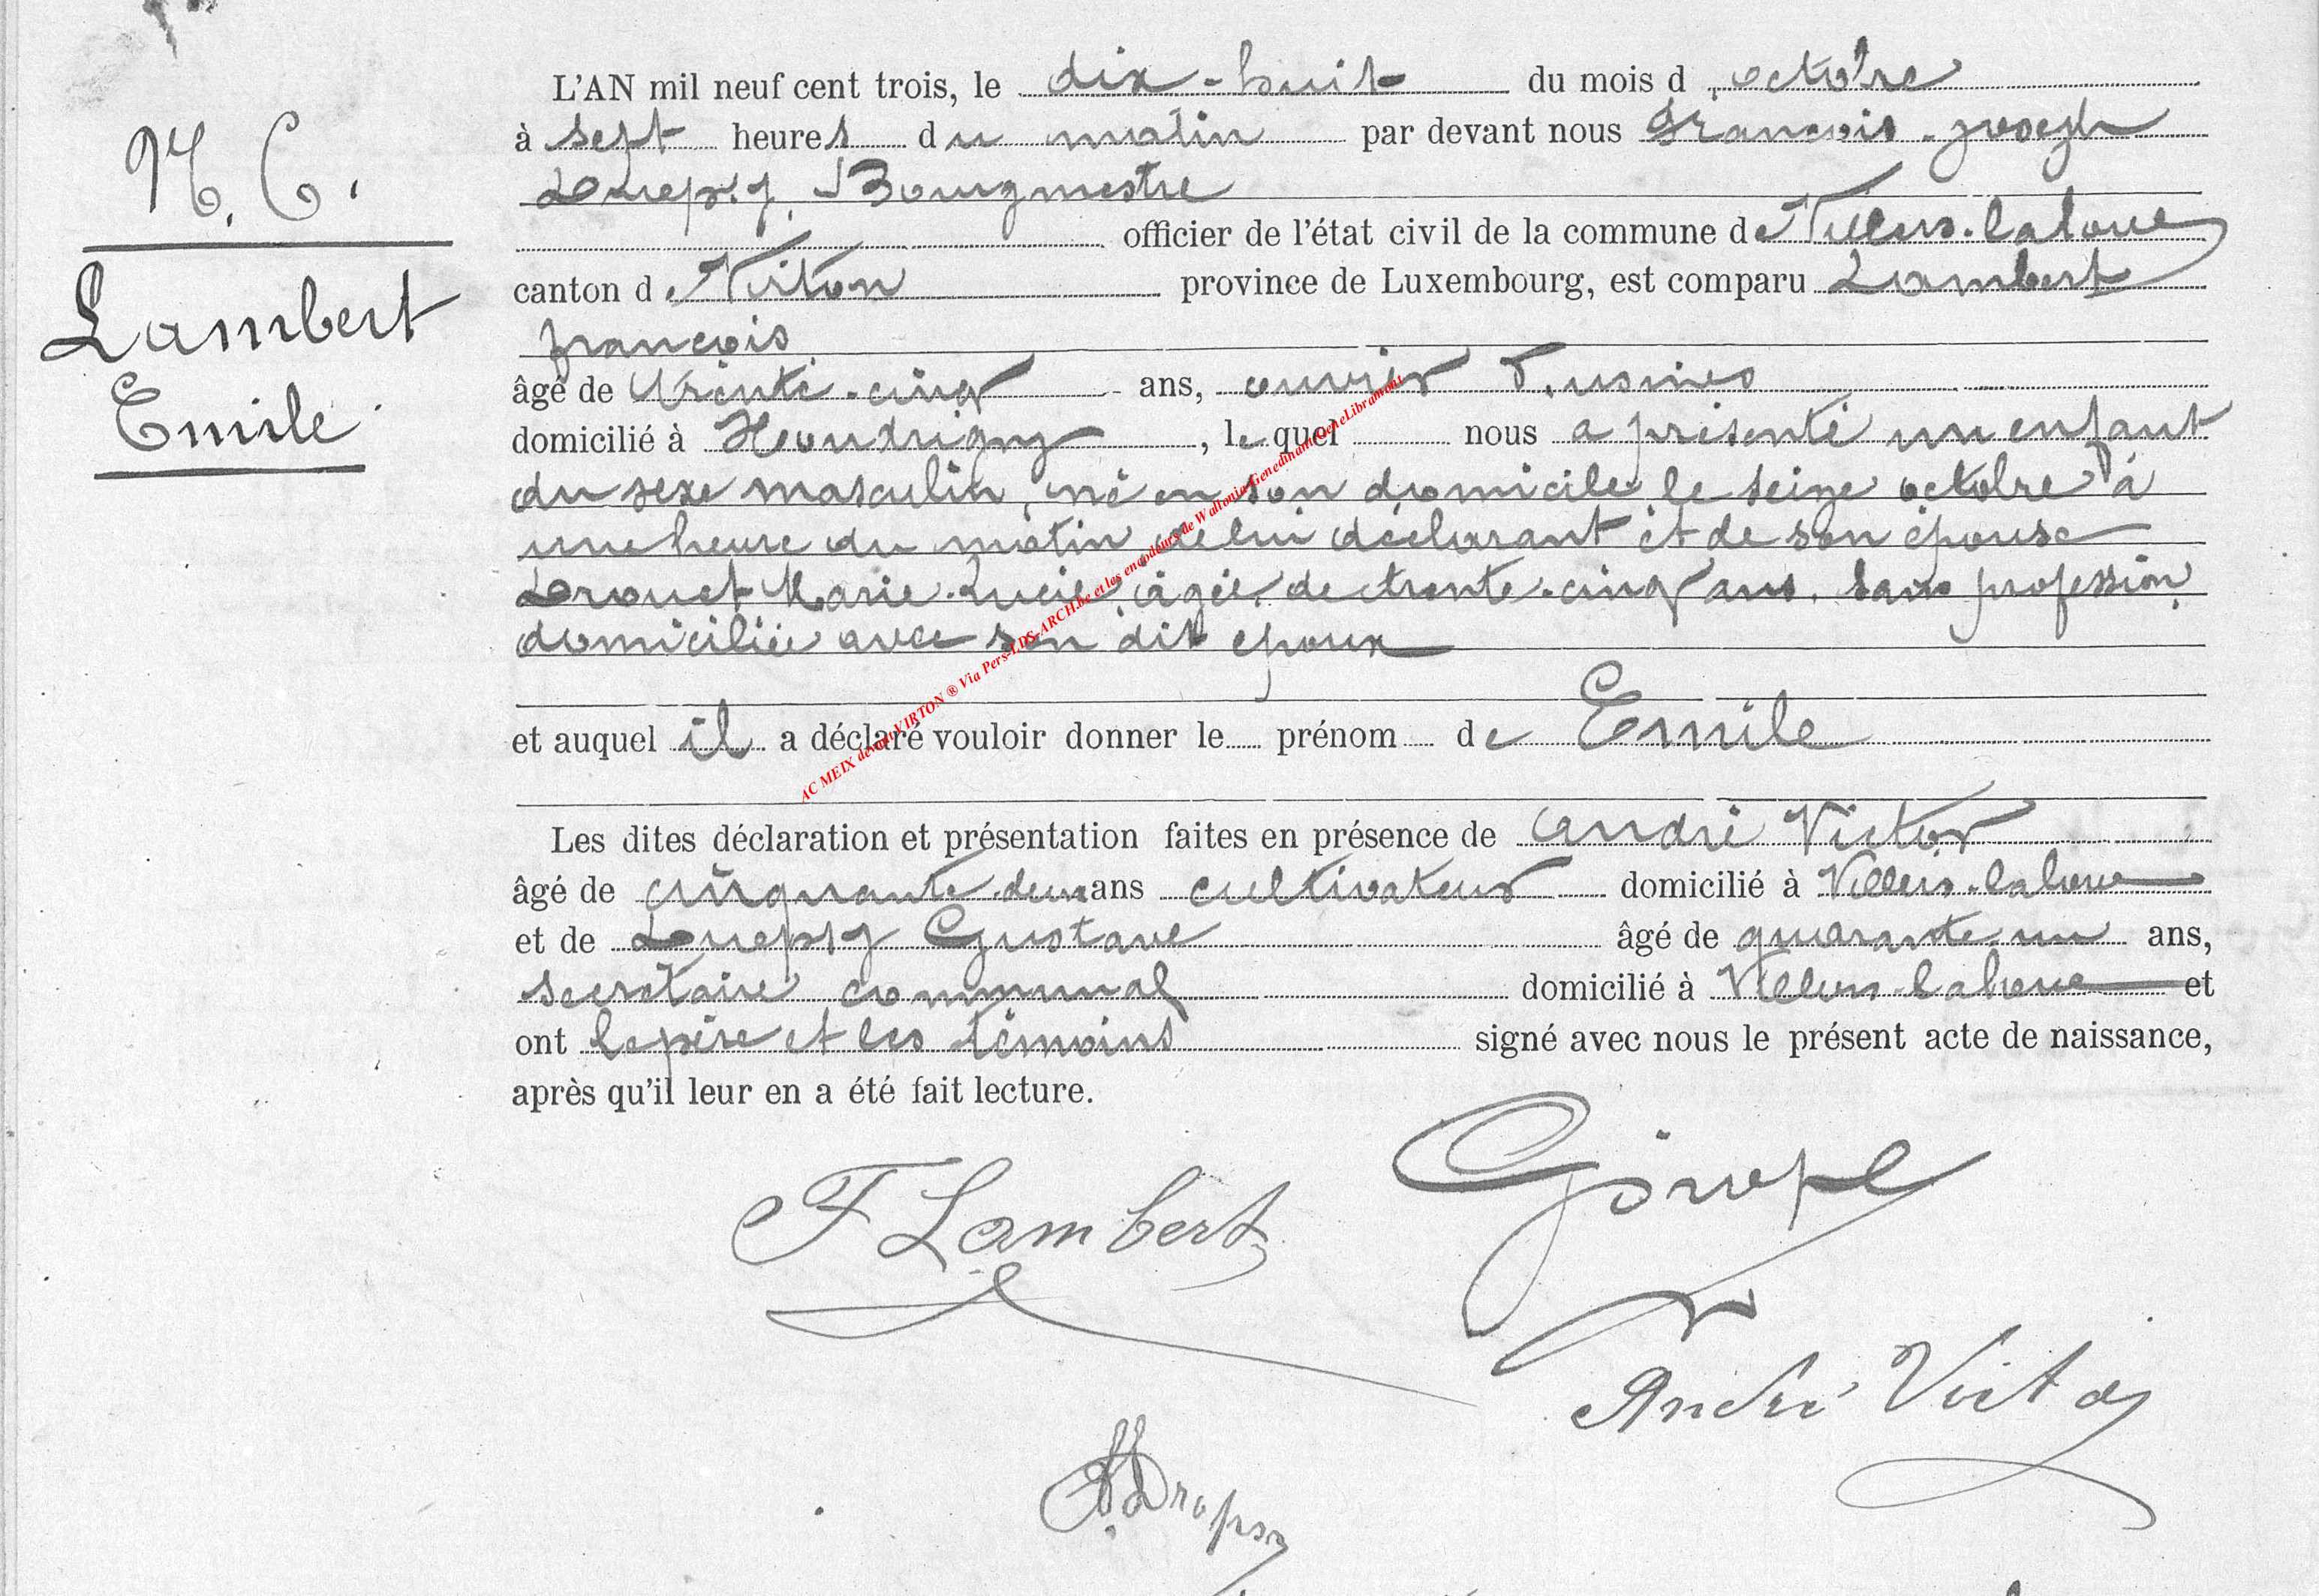 L'AN mil neuf cent trois, le dix-huit du mois d'octobre
à sept heures du matin par devant nous François-Joseph
Bourgmestre
officier de l'état civil de la commune de Villers-la-loue
canton de Virton province de Luxembourg, est comparu Lambert
françois
âgé de trente-cinq ans, ouvrier d'usines
domicilié à Houdrigny, lequel nous a présenté un enfant
du sexe masculin, né en son domicile le seize octobre à
une heure du matin de lui déclarant et de son épouse
Drouet Marie-Lucie, âgée de trente-cinq ans, sans profession,
domiciliée avec son dit époux
et auquel il a déclaré vouloir donner le prénom de Emile
Les dites déclaration et présentation faites en présence de André Victor
âgé de cinquante-deux ans cultivateur domicilié à Villers-la loue
et de Gustave âgé de quarante-un ans,
secrétaire communal domicilié à Villers-la loue et
ont le père et les témoins signé avec nous le présent acte de naissance,
après qu'il leur en a été fait lecture.
N. C.
Lambert
Emile
F Lambert
André Victor
AC MEIX devant VIRTON ® Via Pers-LDS-ARCH.be et les encodeurs de Wallonie GenedinantGeneLibramont